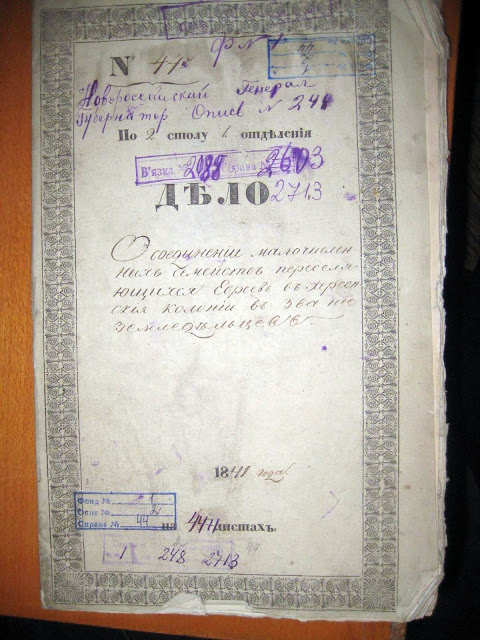 ф N 1
N 44
Новороссийский Генерал
Губернатор Опись N 248
По 2 столу 1 отдѣленія
В'язка № 2088 Справа № 2603
ДѢЛО 2713
О соединеніи малочислен-
ныхъ семействъ переселя-
ющихся Евреевъ въ Херсон-
скія колоніи въ званіе
земледѣльцевъ.
1841 года
Фонд № 1
Опис №
Справа № 44
на 444 листахъ.
1 248 2713